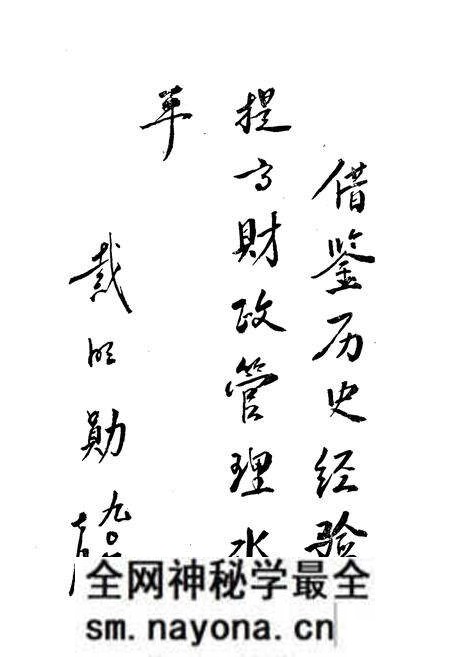 借鉴历史经验
提高財政管理水
平
戴明勋
九〇
全网神秘学最全
sm.nayona.cn